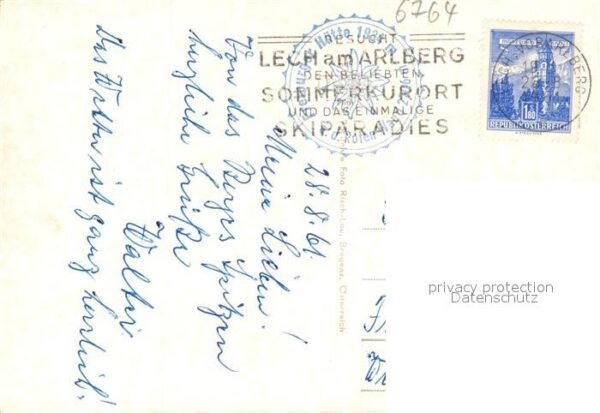 6764
BESUCHT
LECH am ARLBERG
DEN BELIEBTEN
SOMMERKURORT
UND DAS EINMALIGE
SKIPARADIES
1.80
REPUBLIK ÖSTERREICH
28.8.61
Meine Lieben!
Von das Berges Spitzen
herzliche Grüße
Walter
Das Wetter ist ganz herrlich!
Foto Risch-Lau, Bregenz, Österreich
privacy protection
Datenschutz